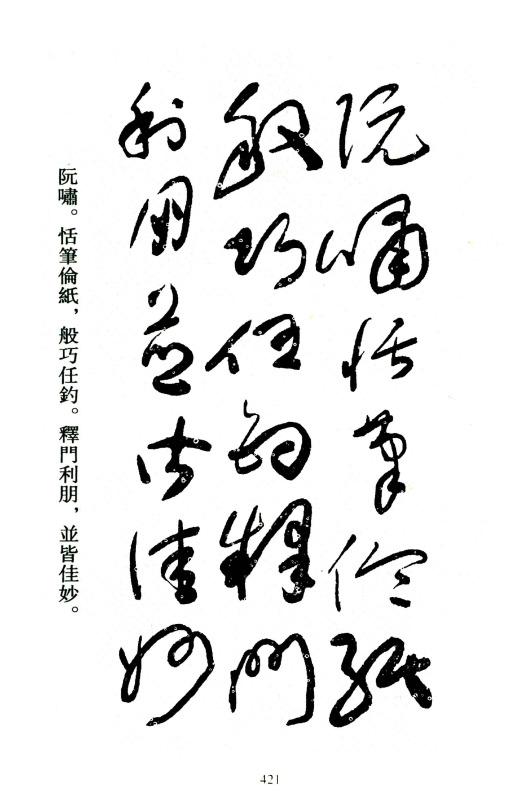 阮嘯恬筆倫紙
般巧任釣釋門
利朋並皆佳妙
阮嘯。恬筆倫紙，般巧任釣。釋門利朋，並皆佳妙。
421